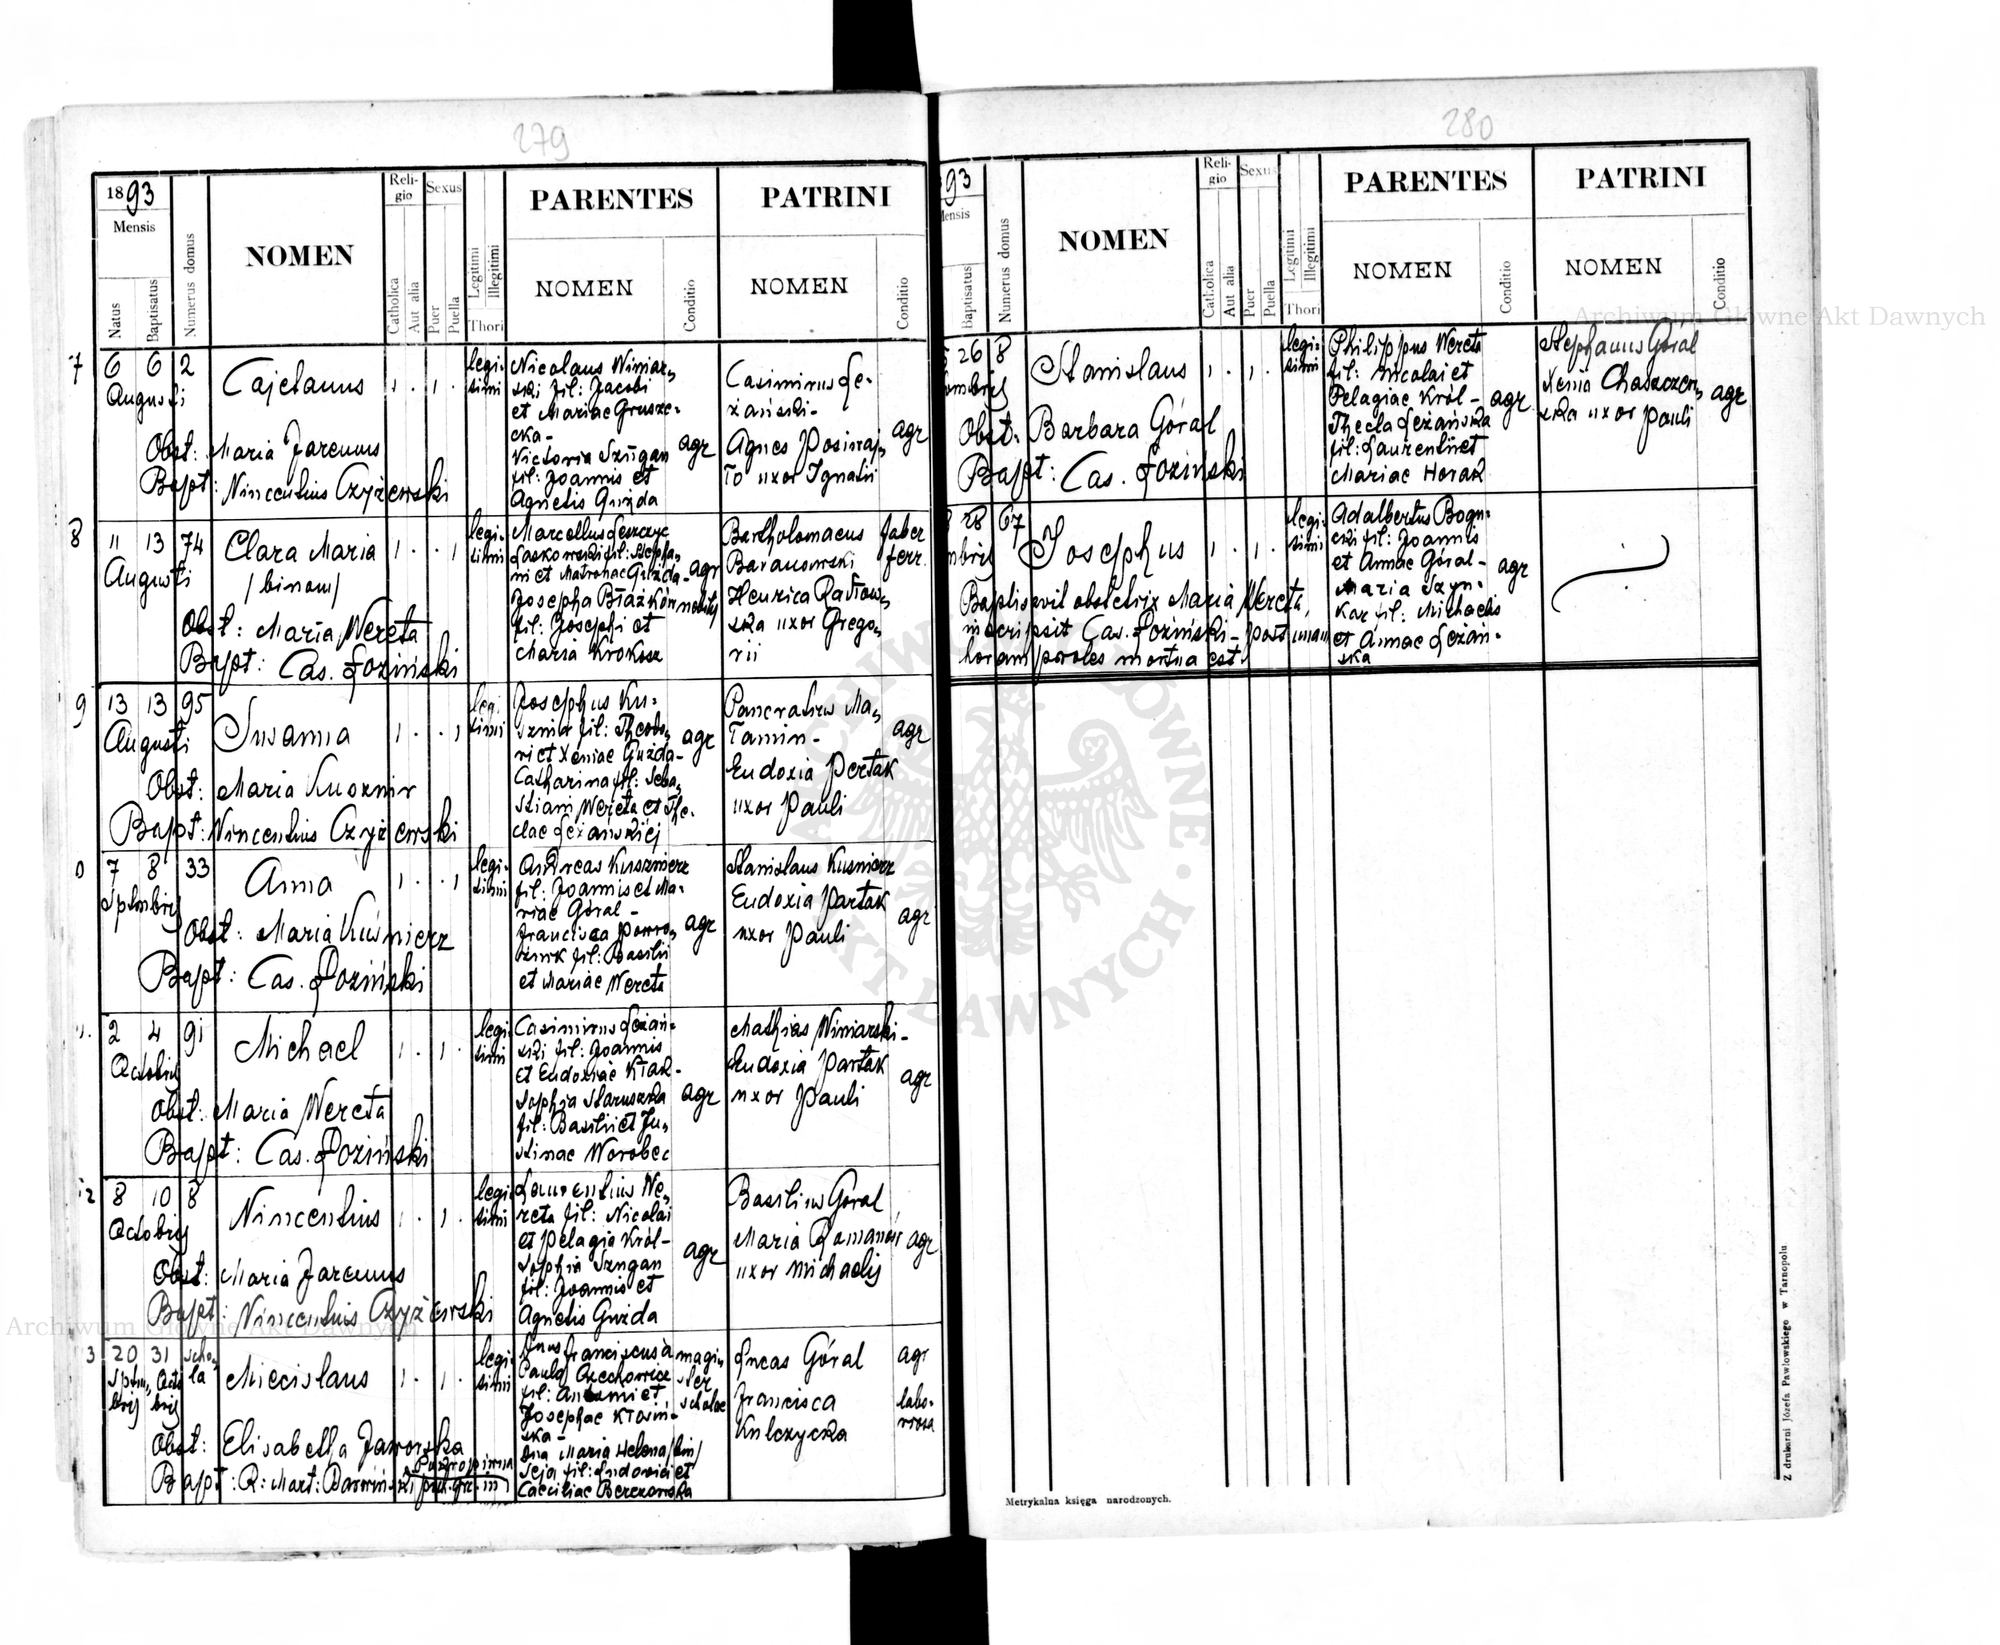 279
1893
Mensis
Natus
Baptisatus
Numerus domus
NOMEN
Religio
Catholica
Aut alia
Sexus
Puer
Puella
Legitimi
Illegitimi
Thori
PARENTES
NOMEN
Conditio
PATRINI
NOMEN
Conditio
7
6 6 2
Augusti
Cajetanus
Obst: Maria Jaremus
Bapt: Vincentius Czyżewski
legi-
timi
Nicolaus Winiar-
ski fil: Jacobi
et Mariae Grusze-
cka -
Victoria Szugan
fil: Joannis et
Agnetis Guzda
agr
Casimirus Le-
żański -
Agnes
uxor Ignatii
agr
8
11 13 74
Augusti
Clara Maria
/binom/
Obst: Maria Wereta
Bapt: Cas. Łoziński
legi-
timi
Marcellus Leszczyc
Laskowski fil: Stepha-
ni et Matronae Guzda -
Josepha Błażków
fil: Josephi et
Maria Krokosz
agr
Bartholomaeus
Baranowski
Henrica Radłow-
ska uxor Grego-
rii
faber
ferr.
9
13 13 95
Augusti
Susanna
Obst: Maria Kusznir
Bapt: Vincentius Czyżewski
legi-
timi
Josephus Ku-
sznir fil: Theodo-
ri et Xeniae Guzda -
Catharina fil: Seba-
stiani Wereta et The-
clae Leżańskiej
agr
Pancratius Ma-
Eudoxia Pertak
uxor Pauli
agr
0
7 8 33
Sptmbris
Anna
Obst: Maria Kuśnierz
Bapt: Cas. Łoziński
legi-
timi
Andreas Kusznierz
fil: Joannis et Ma-
riae Góral -
Francisca
fil: Basilii
et Mariae Wereta
agr
Stanislaus Kusnierz
Eudoxia Partak
uxor Pauli
agr
2 4 91
Octobris
Michael
Obst: Maria Wereta
Bapt: Cas. Łoziński
legi-
timi
Casimirus Leżań-
ski fil: Joannis
et Eudoxiae Ktak -
Sophia Staruszka
fil: Basilii et Ju-
stinae Worobec
agr
Mathias Winiarski -
Eudoxia Partak
uxor Pauli
agr
12
8 10 8
Octobris
Vincentius
Obst: Maria Jaremus
Bapt: Vincentius Czyżewski
legi-
timi
Laurentius We-
reta fil: Nicolai
et Pelagia Król -
Sophia Szugan
fil: Joannis et
Agnetis Guzda
agr
Basilius Góral
Maria Romanów
uxor Michaelis
agr
3
20 31 scho-
Sptm- Octo- la
bris bris
Miecislaus
Obst: Elisabetha Jaworska
Bapt: R: Mart:
legi-
timi
Dnus Franciscus à
Paula Orzechowicz
fil: Antoni et
Josephae Kłosiń-
ska -
Dna Maria Helena /bin/
Seja fil: Ludovici et
Caeciliae Berezowska
magi-
ster
scholae
Lucas Góral
Francisca
Kulczycka
agr
labo-
riosa
280
93
Mensis
Baptisatus
Numerus domus
NOMEN
Religio
Catholica
Aut alia
Sexus
Puer
Puella
Legitimi
Illegitimi
Thori
PARENTES
NOMEN
Conditio
PATRINI
NOMEN
Conditio
26 8
Stanislaus
Obst: Barbara Góral
Bapt: Cas. Łoziński
legi-
timi
Philippus Wereta
fil: Nicolai et
Pelagiae Król -
Thecla Leżańska
fil: Laurentii et
Mariae Horak
agr
Stephanus Góral
Xenia Chaszczew-
ska uxor Pauli
agr
28 67
Josephus
Baptisavit obstetrix Maria Wereta,
inscripsit Cas. Łoziński - post unam
horam proles mortua est.
legi-
timi
Adalbertus Bogu-
cki fil: Joannis
et Annae Góral -
Maria Szyn-
kar fil: Michaelis
et Annae Leżań-
ska
agr
Metrykalna księga narodzonych.
Z drukarni Józefa Pawłowskiego w Tarnopolu
Archiwum Główne Akt Dawnych
Archiwum Główne Akt Dawnych
ARCHIWUM GŁÓWNE AKT DAWNYCH